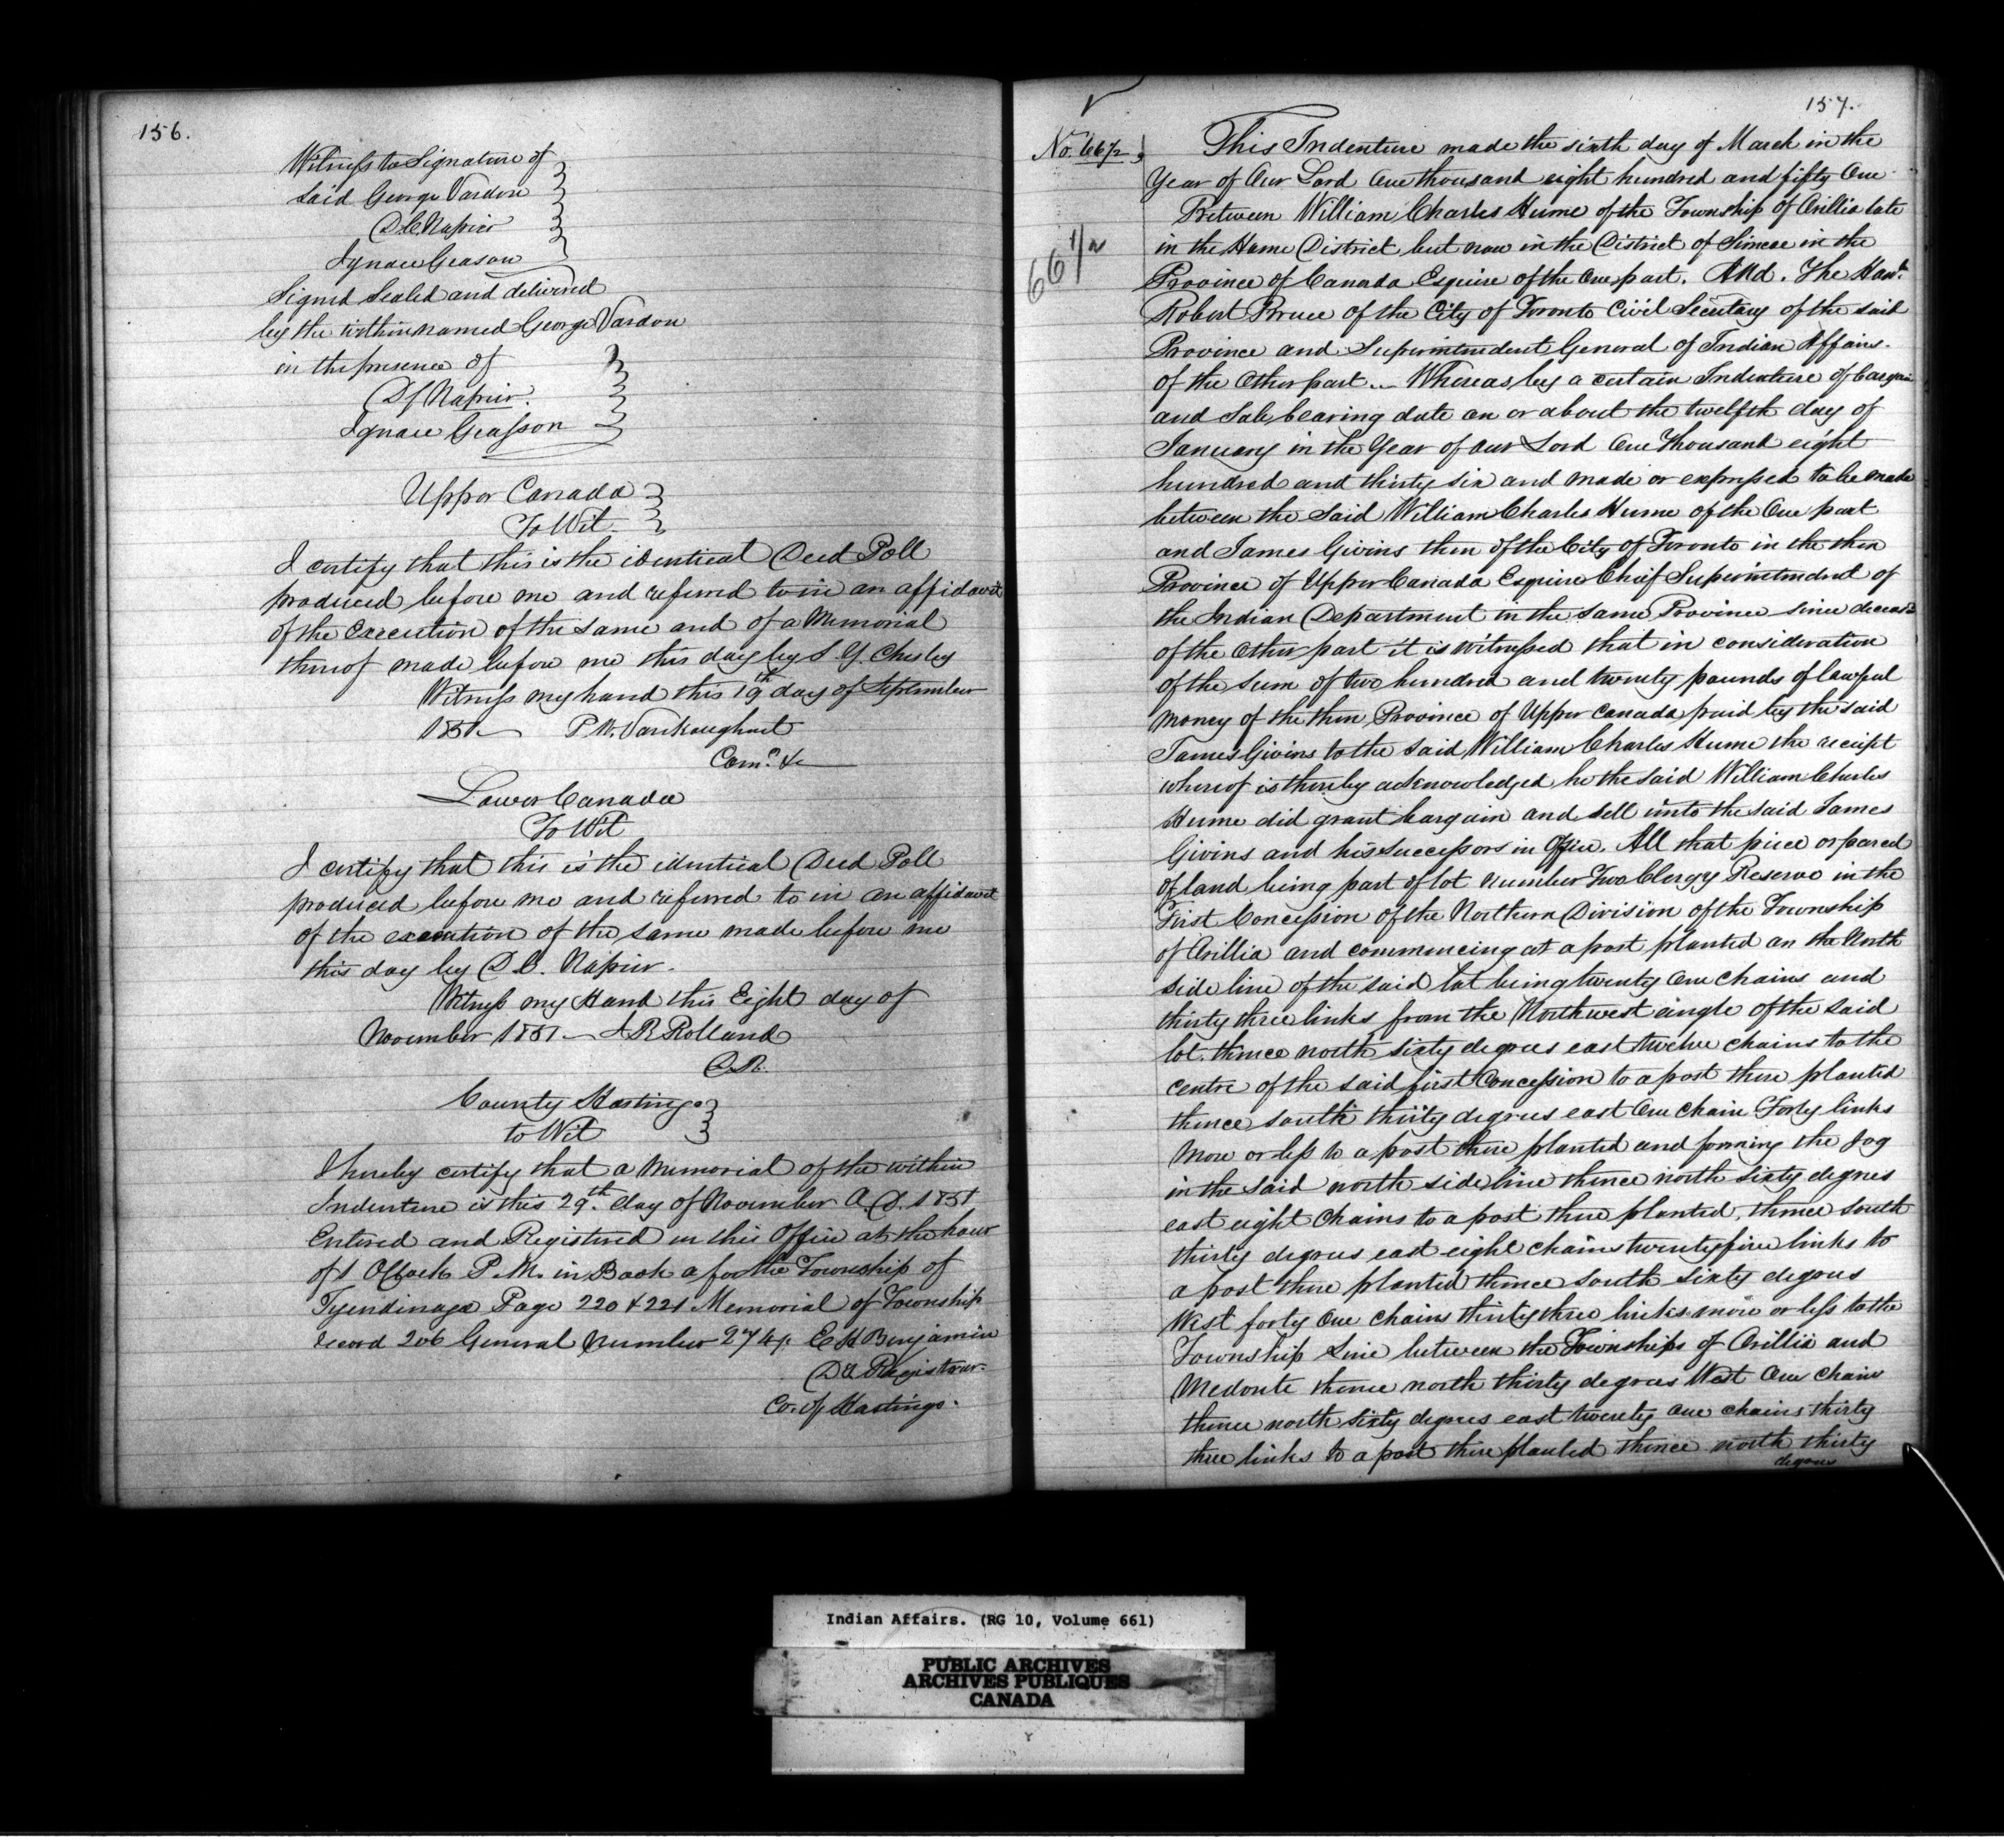 156.
Witness to Signature of
said George Vardon
D.C. Napier
Ignace Geason
Signed Sealed and delivered
by the within named George Vardon
in the presence of
D C Napier.
Ignace Geasson
Upper Canada
To Wit
I certify that this is the identical Deed Poll
produced before me and referred to in an affidavit
of the Execution of the same and of a Memorial
thereof made before me this day by S. Y. Chesley
Witness my hand this 19th day of September
1851 P M. Vankoughnet
Comr. &c
Lower Canada
To Wit
I certify that this is the identical Deed Poll
produced before me and referred to in an affidavit
of the execution of the same made before me
this day by D C. Napier.
Witness my Hand this Eight day of
November 1851 J R Rolland
County Hastings
to Wit
I hereby certify that a Memorial of the within
Indenture is this 29th. day of November A.D. 1851
Entered and Registered in this Office at the hour
of 1 OClock P.M. in Book a for the Township of
Tyendinaga Page 220 & 221 Memorial of Township
record 206 General Number 274 E H Benjamin
Registrar.
Co. of Hastings.
157.
No. 66½
66 1/2
This Indenture made the sixth day of March in the
Year of Our Lord One thousand eight hundred and fifty One
Between William Charles Hume of the Township of Orillia late
in the Home District but now in the District of Simcoe in the
Province of Canada Esquire of the One part. And. The Honb.
Robert Bruce of the City of Toronto Civil Secretary of the said
Province and Superintendent General of Indian Affairs.
of the Other part. Whereas by a certain Indenture of bargain
and Sale bearing date on or about the twelfth day of
January in the Year of our Lord One Thousand eight
hundred and thirty six and made or expressed to be made
between the Said William Charles Hume of the One part
and James Givins then of the City of Toronto in the then
Province of Upper Canada Esquire Chief Superintendent of
the Indian Department in the same Province since deceased
of the Other part it is witnessed that in consideration
of the sum of two hundred and twenty pounds of lawful
money of the then Province of Upper Canada paid by the said
James Givins to the said William Charles Hume the receipt
whereof is thereby acknowledged he the said William Charles
Hume did grant bargain and sell unto the said James
Givins and his successors in Office. All that piece or parcel
of land being part of lot number Two Clergy Reserve in the
First Concession of the Northern Division of the Township
of Orillia and commencing at a post planted on the North
side line of the said lot being twenty one chains and
thirty three links from the Northwest angle of the said
lot. thence north sixty degrees east twelve chains to the
centre of the said first Concession to a post there planted
thence south thirty degrees east One chain Forty links
more or less to a post there planted and forming the Jog
in the said north side line thence north sixty degrees
east eight chains to a post there planted, thence south
thirty degrees east eight chains twenty five links to
a post there planted thence south sixty degrees
West forty one chains thirty three links more or less to the
Township Line between the Townships of Orillia and
Medonte thence north thirty degrees West One chain
thence north sixty degrees east twenty one chains thirty
three links to a post there planted thence north thirty
degrees
Indian Affairs. (RG 10, Volume 661)
PUBLIC ARCHIVES
ARCHIVES PUBLIQUES
CANADA